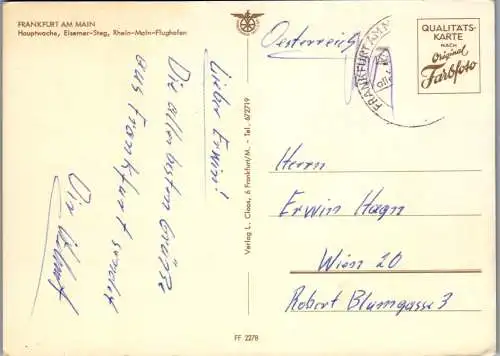 FRANKFURT AM MAIN
Hauptwache, Eiserner-Steg, Rhein-Main-Flughafen
Lieber Erwin!
Die allerbesten Grüße
aus Frankfurt sendet
Dir
Verlag L. Claas, 6 Frankfurt/M. - Tel. 672719
FF 2278
Oesterreich
FRANKFURT AM M
QUALITÄTS-
KARTE
NACH
Original
Farbfoto
Herrn
Erwin Hagn
Wien 20
Robert Blumgasse 3